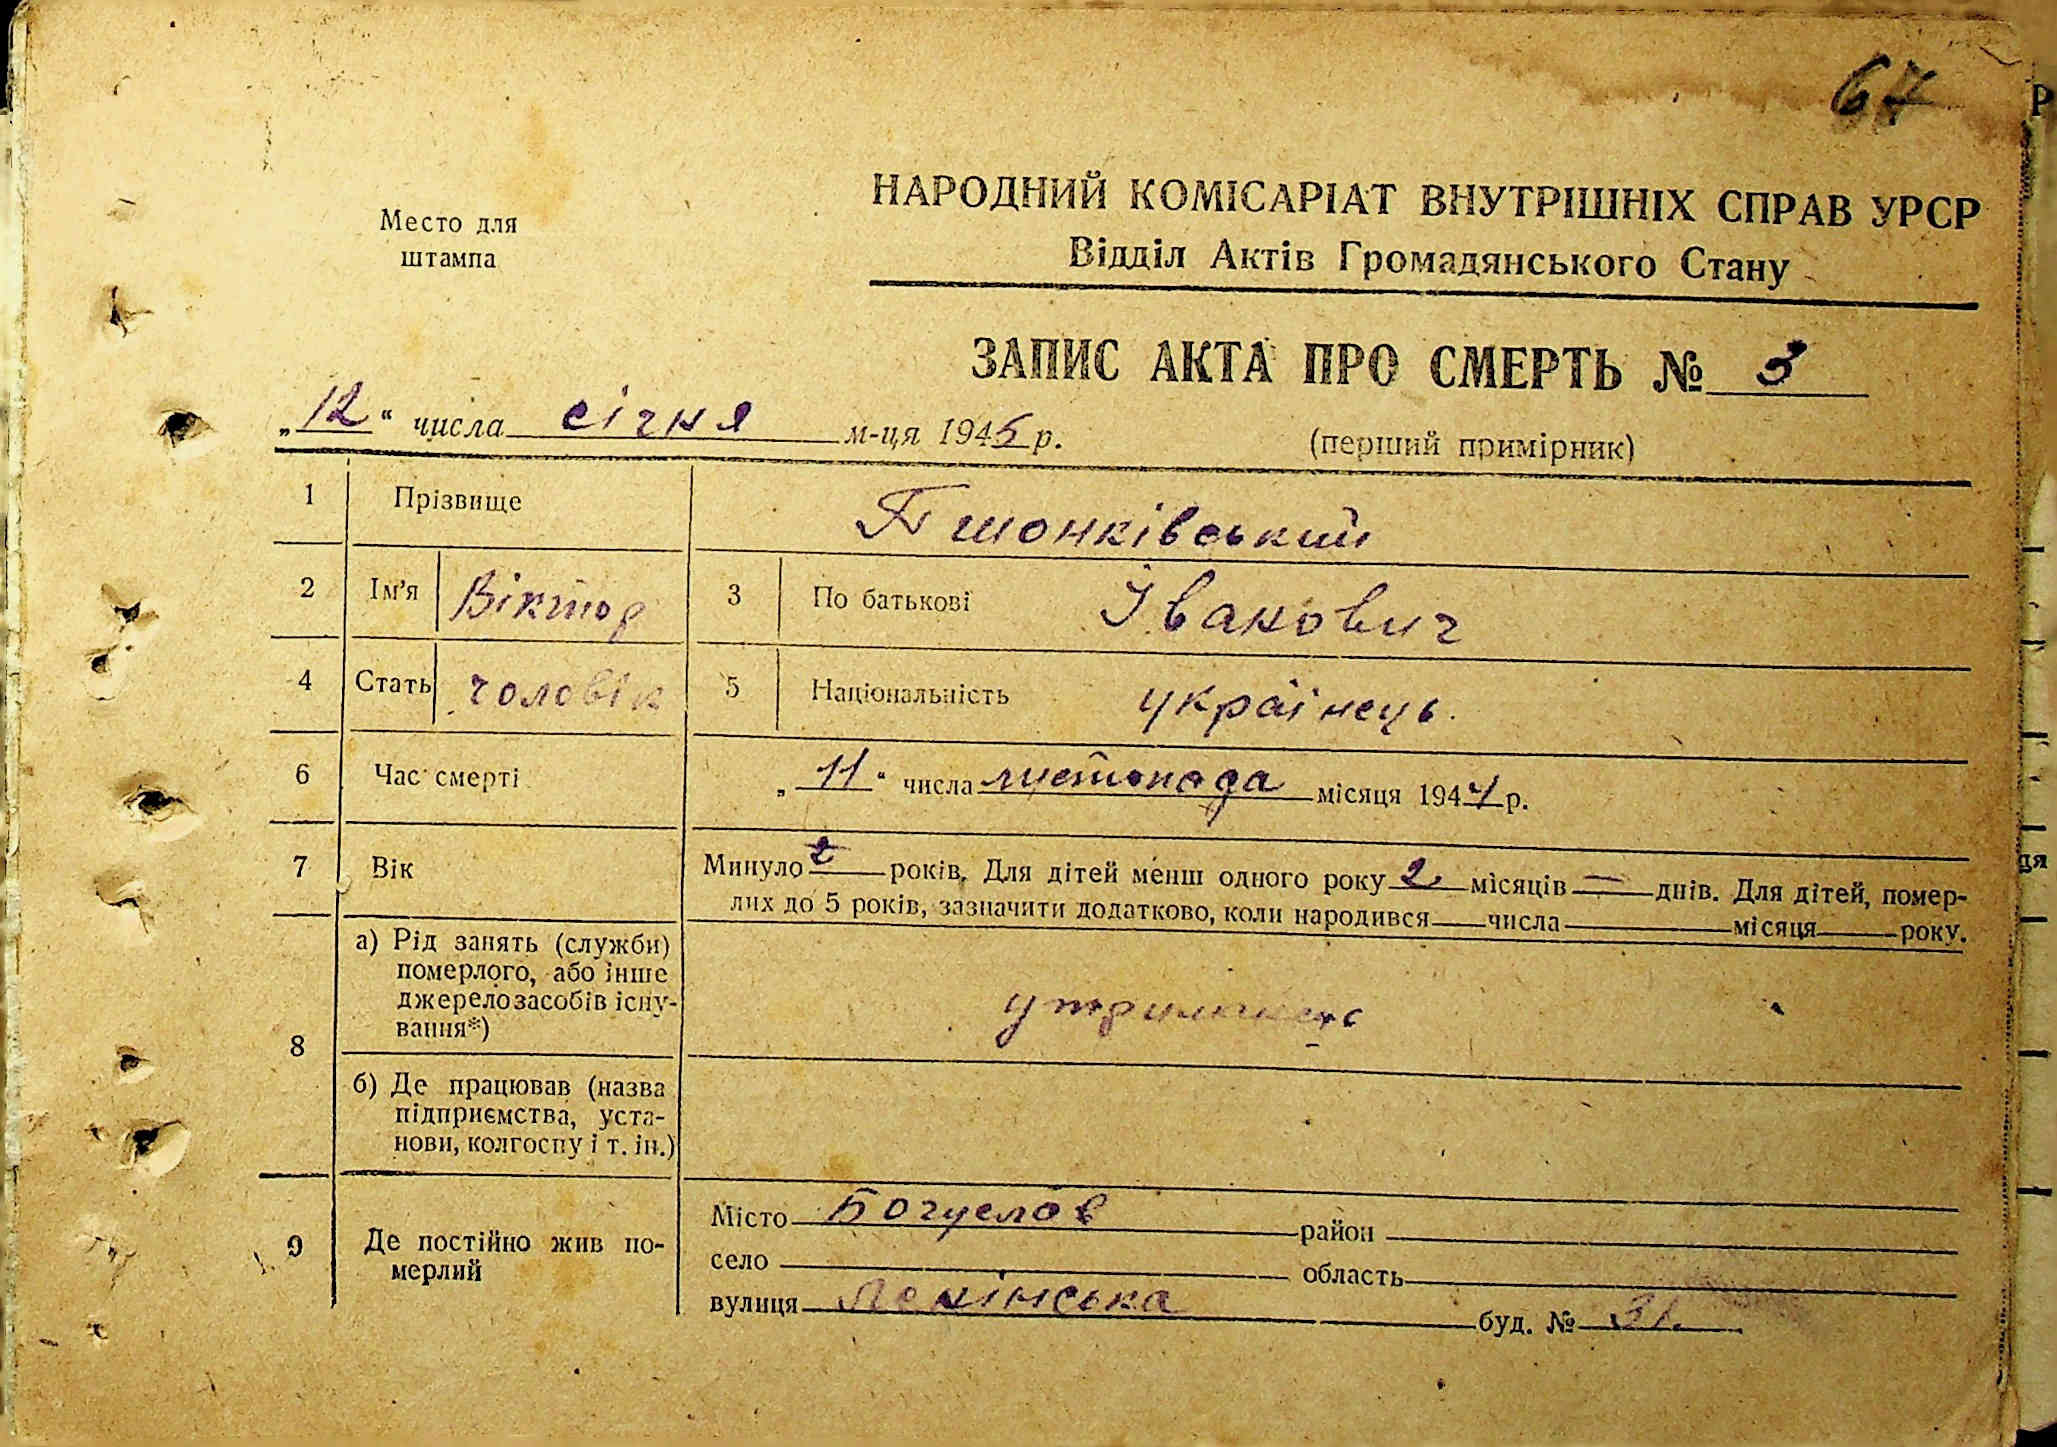 67
Место для
штампа
НАРОДНИЙ КОМІСАРІАТ ВНУТРІШНІХ СПРАВ УРСР
Відділ Актів Громадянського Стану
ЗАПИС АКТА ПРО СМЕРТЬ № 3
„12“ числа січня м-ця 1945 р. (перший примірник)
1 Прізвище Пшонківський
2 Ім'я Віктор 3 По батькові Іванович
4 Стать чоловік 5 Національність українець.
6 Час смерті „11“ числа листопада місяця 1944 р.
7 Вік Минуло років. Для дітей менш одного року 2. місяців — днів. Для дітей, помер-
лих до 5 років, зазначити додатково, коли народився числа місяця року.
8 а) Рід занять (служби)
померлого, або інше
джерело засобів існу-
вання*)
утриманець
б) Де працював (назва
підприємства, уста-
нови, колгоспу і т. ін.)
9 Де постійно жив по-
мерлий
Місто Богуслав район
село область
вулиця Ленінська буд. № 31.